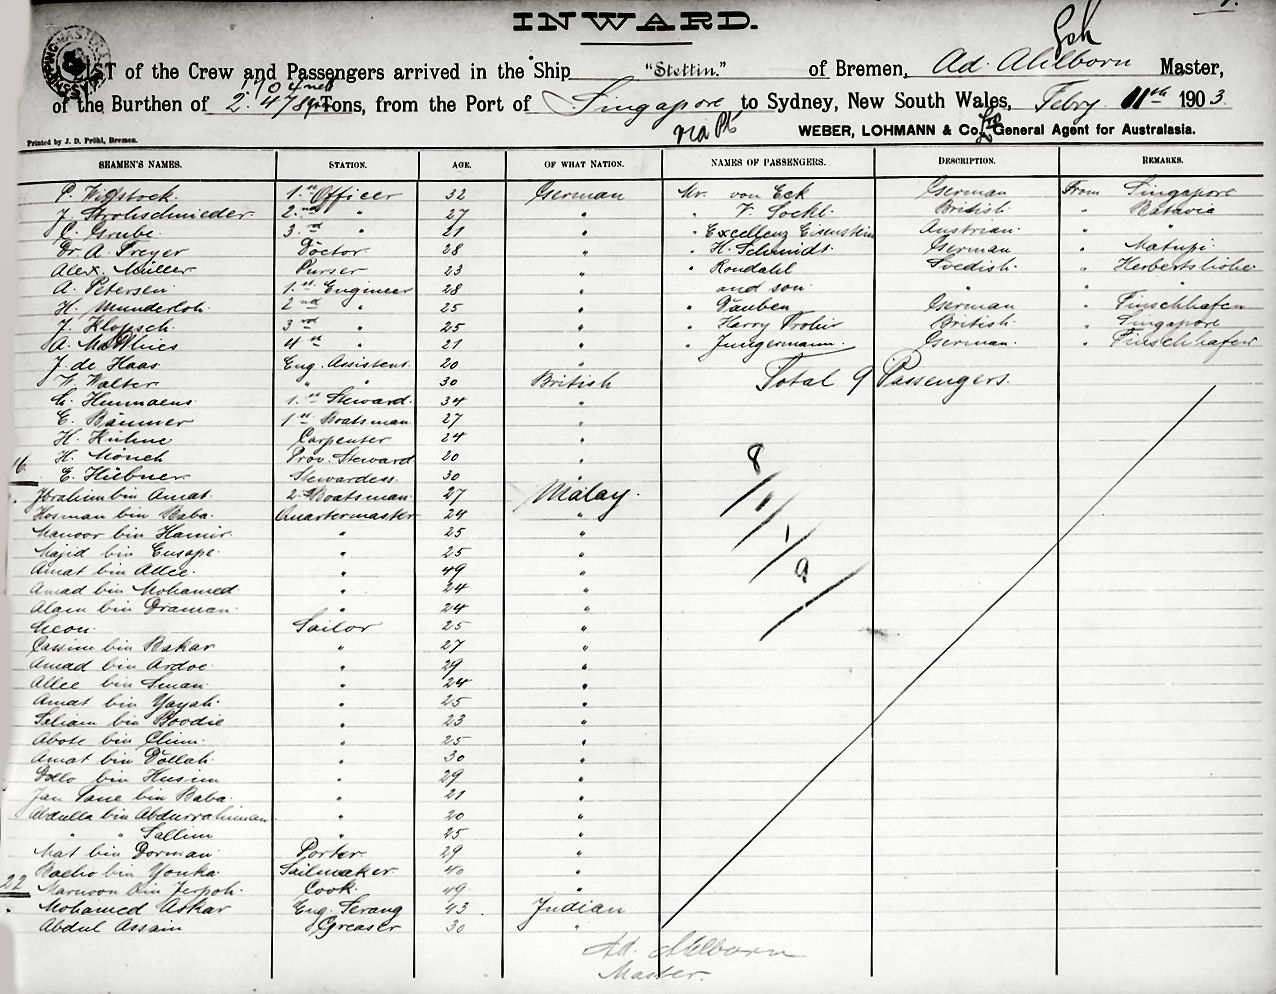 INWARD.
LIST of the Crew and Passengers arrived in the Ship "Stettin." of Bremen, Ad. Ahlborn Master,
of the Burthen of 2.478 Tons, from the Port of Singapore to Sydney, New South Wales, Febry. 11th 1903.
via Pt
Printed by J. D. Pröhl, Bremen.
WEBER, LOHMANN & Co., General Agent for Australasia.
SEAMEN'S NAMES. STATION. AGE. OF WHAT NATION. NAMES OF PASSENGERS. DESCRIPTION. REMARKS.
P. Wigstock. 1.st Officer 32 German Mr. von Eck German From Singapore
J. Strohschnieder. 2.nd " 27 " " F. Sockl. British. " Batavia
C. Grube. 3.rd " 21 " " Excellenz Eisenstein Austrian. " "
Dr A. Freyer Doctor. 28 " " H. Schmidt. German " Matupi.
Alex. Müller Purser 23 " " Rondahl Swedish. " Herbertshöhe
A. Petersen. 1.st Engineer 28 " and son. " " "
H. Munderloh. 2nd " 25 " " Dauben German " Finschhafen
J. Klopsch. 3rd " 25 " " Harry British. " Singapore
A. Mathies 4th " 21 " " Jungermann. German. " Finschhafen
J. de Haas Eng. Assistent. 20 "
Walter " " 30 British Total 9 Passengers.
1.st Steward. 34 "
E. Bäumer 1st Boatsman 27 "
H. Kühne Carpenter 24 "
H. Mönch Prov. Steward 20 " 8
16. E. Hübner Stewardess. 30 "
Ibrahim bin Amat. 2. Boatsman. 27 Malay.
Hosman bin Baba. Quartermaster 24 " 1
Manoor bin Hamir. " 25 " 1
Majid bin Eusope. " 25 "
Amat bin Allee. " 49 " 9
Amad bin Mohamed. " 24 "
Alam bin Draman. " 24 "
Sailor 25 "
Cassim bin Bakar " 27 "
Amad bin Ardoe. " 29 "
Allee bin Sman. " 24 "
Amat bin Yayah. " 25 "
Saliam bin Boodie " 23 "
Abote bin " 25 "
Amat bin Dollah. " 30 "
bin Husim " 29 "
bin Baba. " 21 "
Abdulla bin Abdurrahiman " 20 "
" " Sallim " 25 "
Mat bin Dorman. Porter. 29 "
bin Yonka. Sailmaker 40 "
22 bin Jerpoh. Cook. 49. "
Mohamed Askar Eng. Serang 43. Indian
Abdul Assam Greaser 30 "
Ad. Ahlborn
Master.